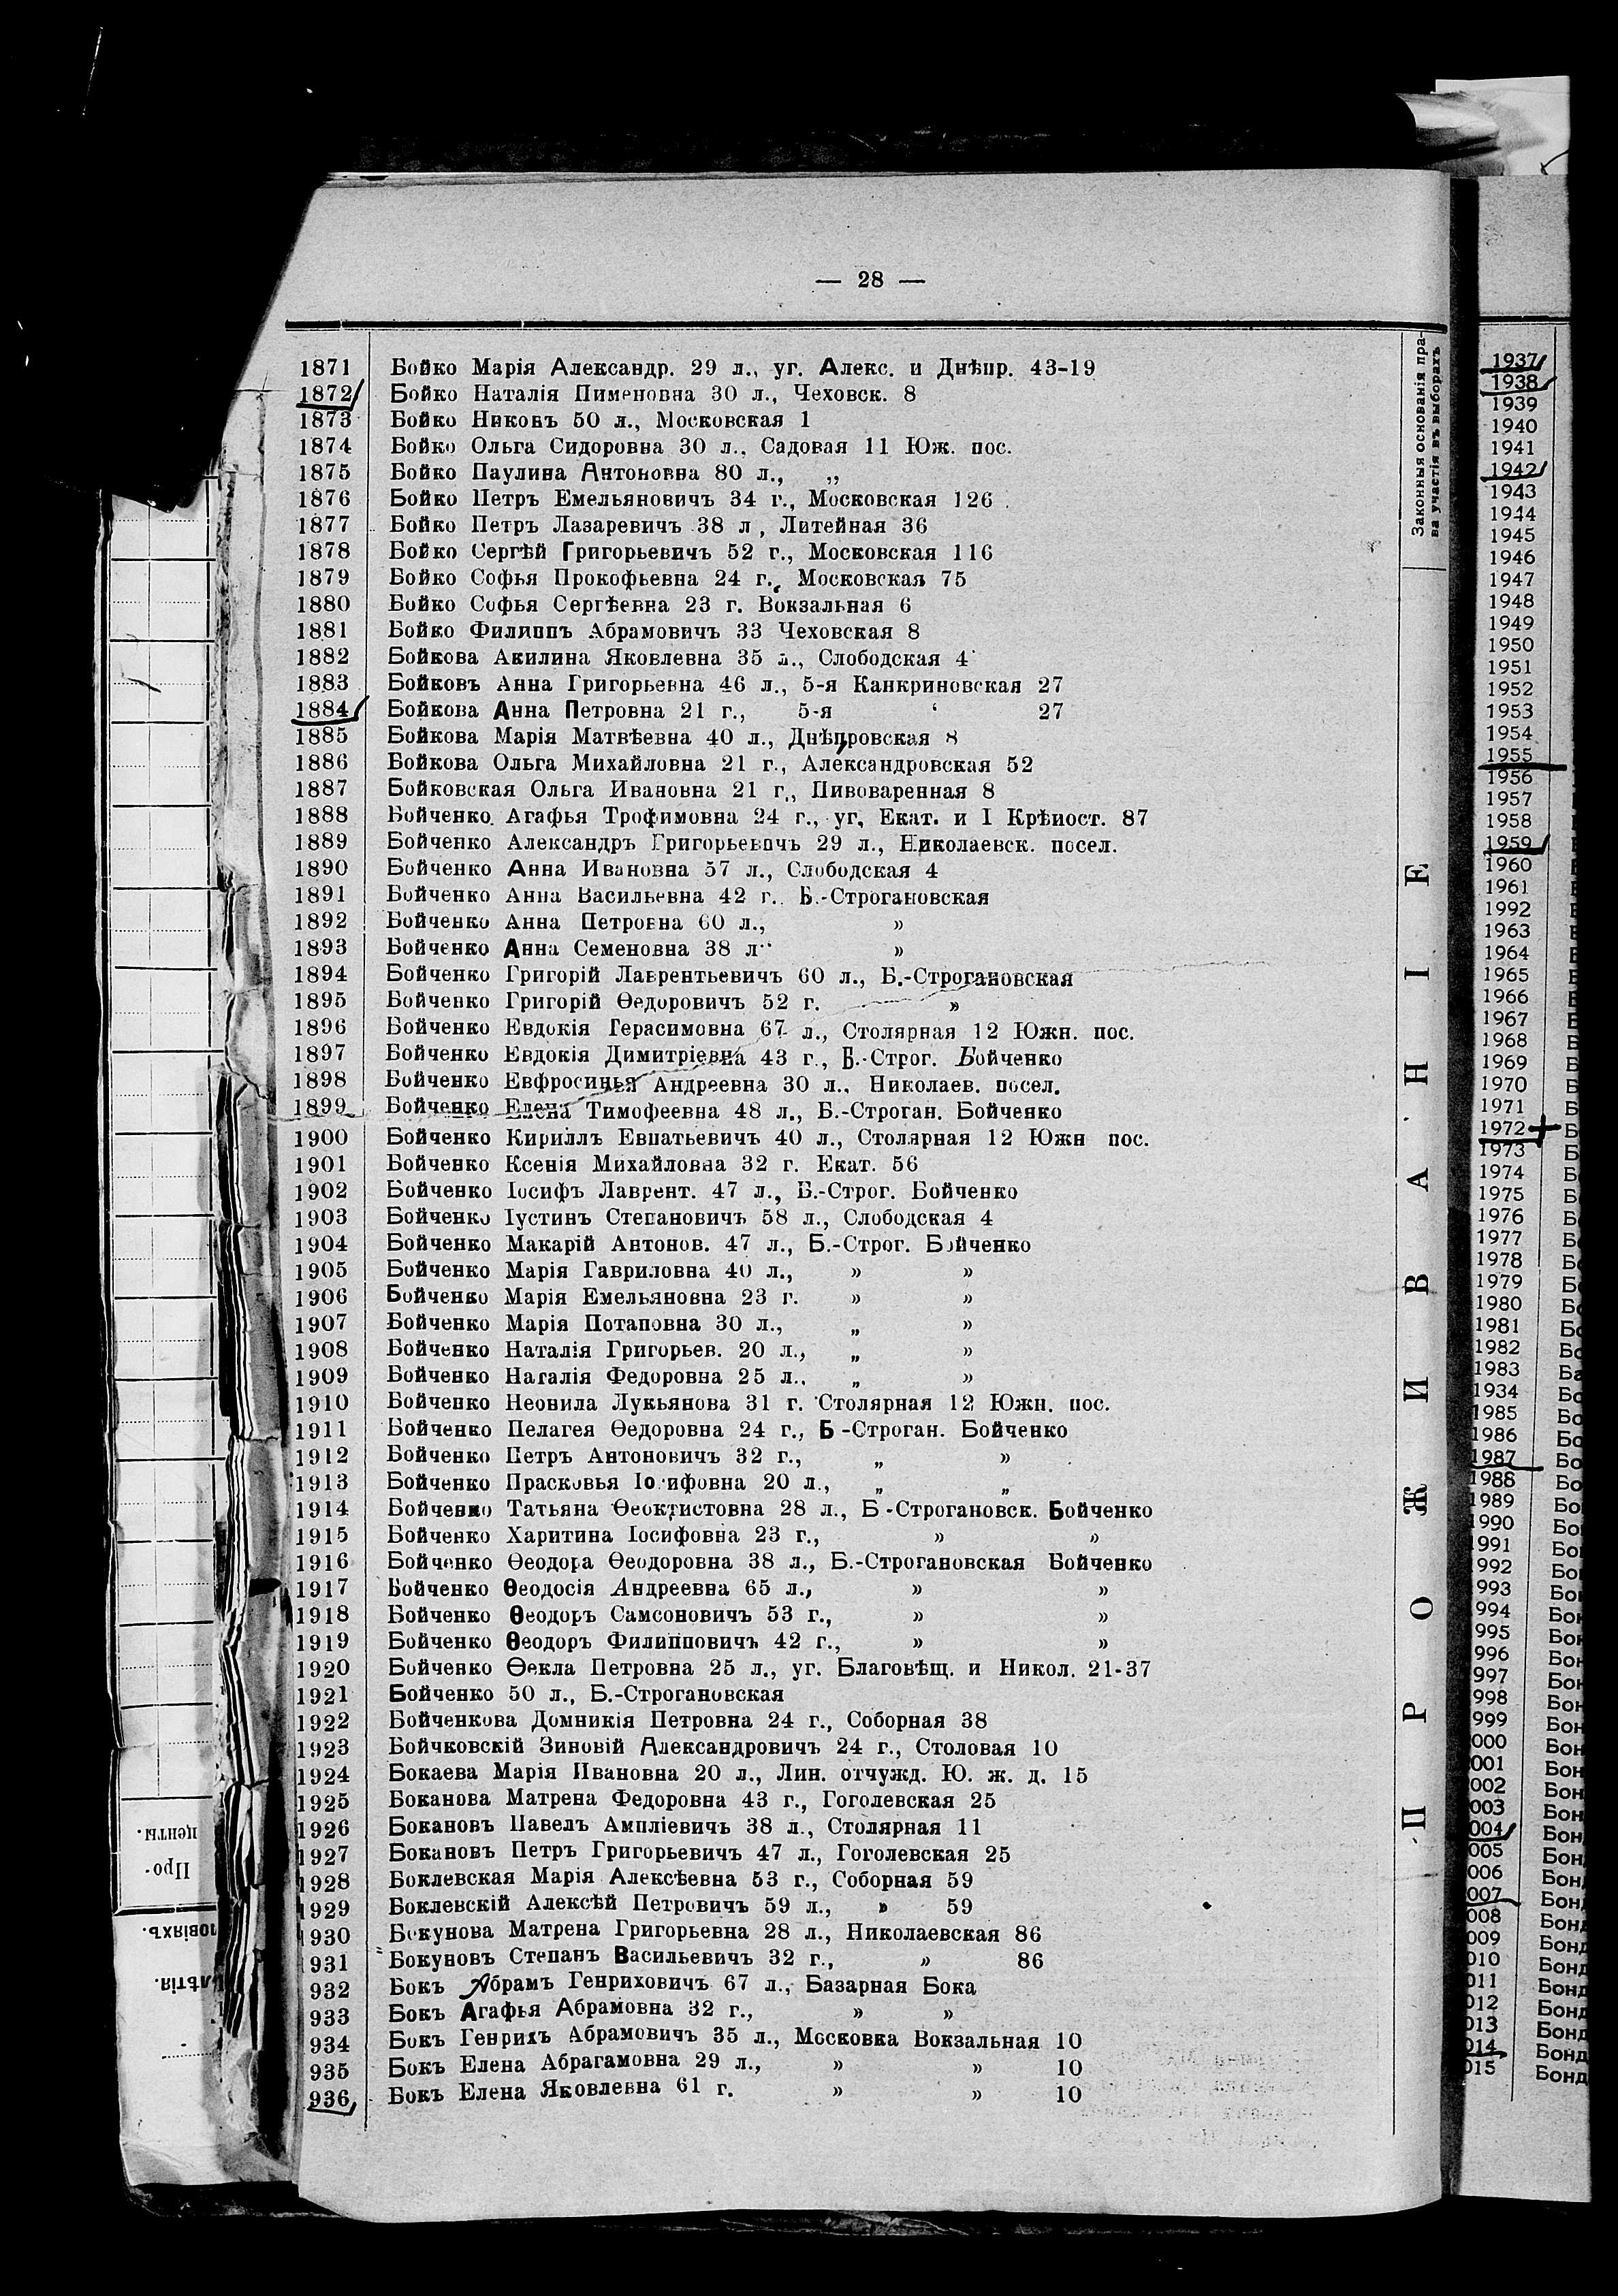 — 28 —
Законныя основанія пра-
ва участія въ выборахъ
ПРОЖИВАНІЕ
1871 Бойко Марія Александр. 29 л., уг. Алекс. и Днѣпр. 43-19
1872 Бойко Наталія Пименовна 30 л., Чеховск. 8
1873 Бойко Никонъ 50 л., Московская 1
1874 Бойко Ольга Сидоровна 30 л., Садовая 11 Юж. пос.
1875 Бойко Паулина Антоновна 80 л., „
1876 Бойко Петръ Емельяновичъ 34 г., Московская 126
1877 Бойко Петръ Лазаревичъ 38 л, Литейная 36
1878 Бойко Сергѣй Григорьевичъ 52 г., Московская 116
1879 Бойко Софья Прокофьевна 24 г., Московская 75
1880 Бойко Софья Сергѣевна 23 г. Вокзальная 6
1881 Бойко Филиппъ Абрамовичъ 33 Чеховская 8
1882 Бойкова Акилина Яковлевна 35 л., Слободская 4
1883 Бойковъ Анна Григорьевна 46 л., 5-я Канкриновская 27
1884 Бойкова Анна Петровна 21 г., 5-я ‘ 27
1885 Бойкова Марія Матвѣевна 40 л., Днѣпровская 8
1886 Бойкова Ольга Михайловна 21 г., Александровская 52
1887 Бойковская Ольга Ивановна 21 г., Пивоваренная 8
1888 Бойченко Агафья Трофимовна 24 г., уг. Екат. и I Крѣпост. 87
1889 Бойченко Александръ Григорьевичъ 29 л., Николаевск. посел.
1890 Бойченко Анна Ивановна 57 л., Слободская 4
1891 Бойченко Анна Васильевна 42 г. Б.-Строгановская
1892 Бойченко Анна Петровна 60 л., »
1893 Бойченко Анна Семеновна 38 л. »
1894 Бойченко Григорій Лаврентьевичъ 60 л., Б.-Строгановская
1895 Бойченко Григорій Ѳедоровичъ 52 г. »
1896 Бойченко Евдокія Герасимовна 67 л., Столярная 12 Южн. пос.
1897 Бойченко Евдокія Димитріевна 43 г., Б.-Строг. Бойченко
1898 Бойченко Евфросинья Андреевна 30 л., Николаев. посел.
1899 Бойченко Елена Тимофеевна 48 л., Б.-Строган. Бойченко
1900 Бойченко Кириллъ Евпатьевичъ 40 л., Столярная 12 Южн пос.
1901 Бойченко Ксенія Михайловна 32 г. Екат. 56
1902 Бойченко Іосифъ Лаврент. 47 л., Б.-Строг. Бойченко
1903 Бойченко Іустинъ Степановичъ 58 л., Слободская 4
1904 Бойченко Макарій Антонов. 47 л., Б.-Строг. Бойченко
1905 Бойченко Марія Гавриловна 40 л., » »
1906 Бойченко Марія Емельяновна 23 г. » »
1907 Бойченко Марія Потаповна 30 л., „ »
1908 Бойченко Наталія Григорьев. 20 л., „ »
1909 Бойченко Наталія Федоровна 25 л.. „ »
1910 Бойченко Неонила Лукьянова 31 г. Столярная 12 Южн. пос.
1911 Бойченко Пелагея Ѳедоровна 24 г., Б-Строган. Бойченко
1912 Бойченко Петръ Антоновичъ 32 г., „ »
1913 Бойченко Прасковья Іосифовна 20 л., „ „
1914 Бойченко Татьяна Ѳеоктистовна 28 л., Б-Строгановск. Бойченко
1915 Бойченко Харитина Іосифовна 23 г., » »
1916 Бойченко Ѳеодора Ѳеодоровна 38 л., Б.-Строгановская Бойченко
1917 Бойченко Ѳеодосія Андреевна 65 л., » »
1918 Бойченко Ѳеодоръ Самсоновичъ 53 г., » »
1919 Бойченко Ѳеодоръ Филипповичъ 42 г., » »
1920 Бойченко Ѳекла Петровна 25 л., уг. Благовѣщ. и Никол. 21-37
1921 Бойченко 50 л., Б.-Строгановская
1922 Бойченкова Домникія Петровна 24 г., Соборная 38
1923 Бойчковскій Зиновій Александровичъ 24 г., Столовая 10
1924 Бокаева Марія Ивановна 20 л., Лин. отчужд. Ю. ж. д. 15
1925 Боканова Матрена Федоровна 43 г., Гоголевская 25
1926 Бокановъ Павелъ Ампліевичъ 38 л., Столярная 11
1927 Бокановъ Петръ Григорьевичъ 47 л., Гоголевская 25
1928 Боклевская Марія Алексѣевна 53 г., Соборная 59
1929 Боклевскій Алексѣй Петровичъ 59 л., » 59
1930 Бокунова Матрена Григорьевна 28 л., Николаевская 86
1931 Бокуновъ Степанъ Васильевичъ 32 г., » 86
932 Бокъ Абрамъ Генриховичъ 67 л., Базарная Бока
933 Бокъ Агафья Абрамовна 32 г., » »
934 Бокъ Генрихъ Абрамовичъ 35 л., Московка Вокзальная 10
935 Бокъ Елена Абрагамовна 29 л., » » 10
936 Бокъ Елена Яковлевна 61 г. » » 10
центы.
Про-
1937
1938
1939
1940
1941
1942
1943
1944
1945
1946
1947
1948
1949
1950
1951
1952
1953
1954
1955
1956
1957
1958
1959
1960
1961
1992
1963
1964
1965
1966
1967
1968
1969
1970
1971
1972
1973
1974
1975
1976
1977
1978
1979
1980
1981
1982
1983
1934
1985
1986
1987
1988
1989
1990
991
992
993
994
995
996
997
998
999
000
001
002
003
004
005
006
007
008
009
010
011
012
013
014
015